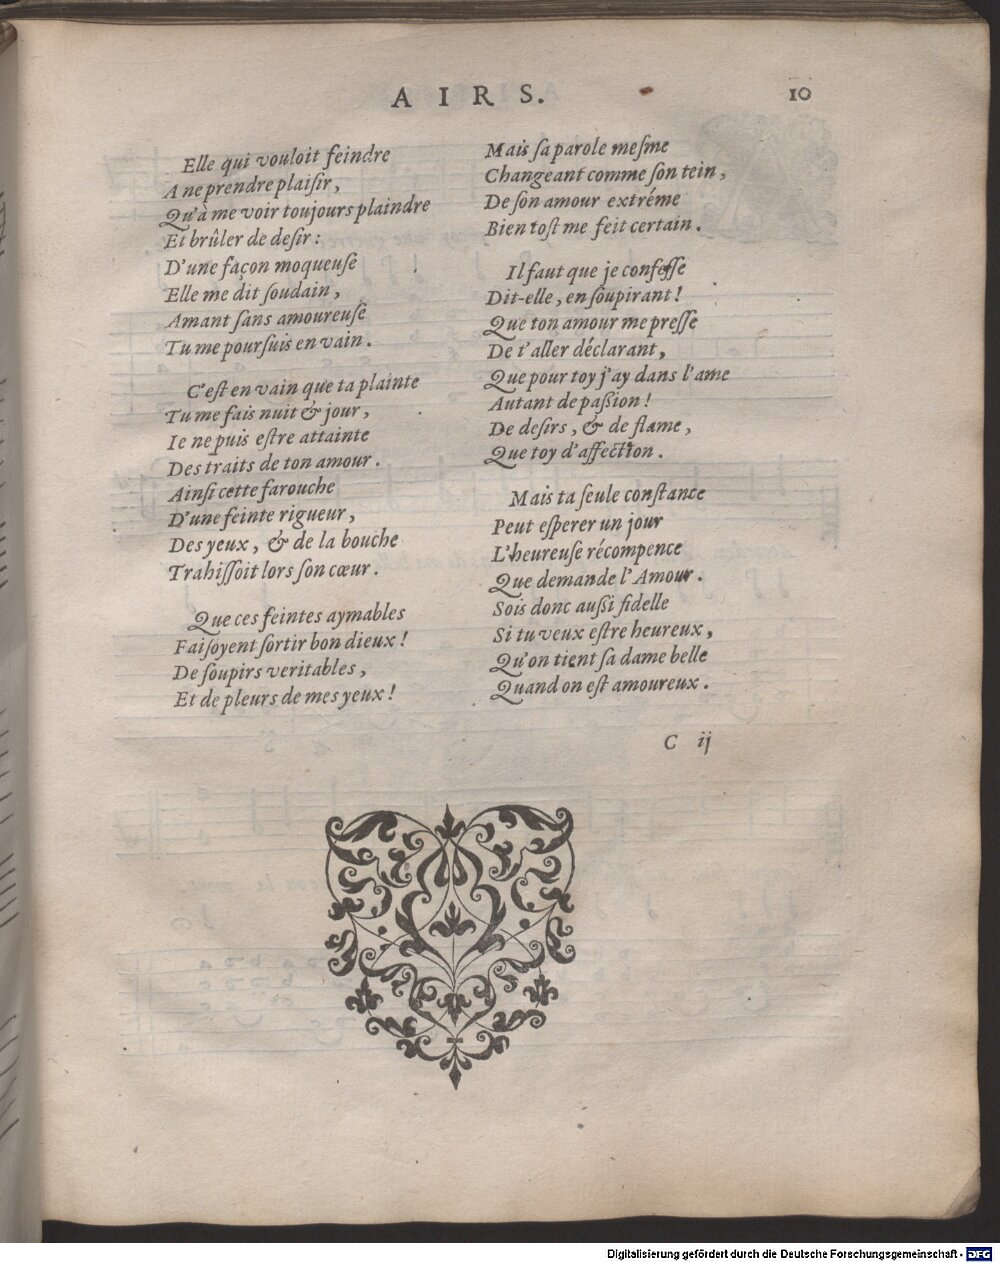 AIRS.
10
Elle qui vouloit feindre
A ne prendre plaiſir,
Qu'à me voir toujours plaindre
Et brûler de deſir :
D'une façon moqueuſe
Elle me dit ſoudain,
Amant ſans amoureuſe
Tu me pourſuis en vain.
C'eſt en vain que ta plainte
Tu me fais nuit & jour,
Ie ne puis eſtre attainte
Des traits de ton amour.
Ainſi cette farouche
D'une feinte rigueur,
Des yeux, & de la bouche
Trahiſſoit lors ſon cœur.
Que ces feintes aymables
Faiſoyent ſortir bon dieux !
De ſoupirs veritables,
Et de pleurs de mes yeux !
Mais ſa parole meſme
Changeant comme ſon tein,
De ſon amour extréme
Bien toſt me feit certain.
Il faut que je confeſſe
Dit-elle, en ſoupirant !
Que ton amour me preſſe
De t'aller déclarant,
Que pour toy j'ay dans l'ame
Autant de paßion !
De deſirs, & de flame,
Que toy d'affection.
Mais ta ſeule conſtance
Peut eſperer un jour
L'heureuſe récompence
Que demande l'Amour.
Sois donc außi fidelle
Si tu veux eſtre heureux,
Qu'on tient ſa dame belle
Quand on eſt amoureux.
C ij
Digitalisierung gefördert durch die Deutsche Forschungsgemeinschaft - DFG